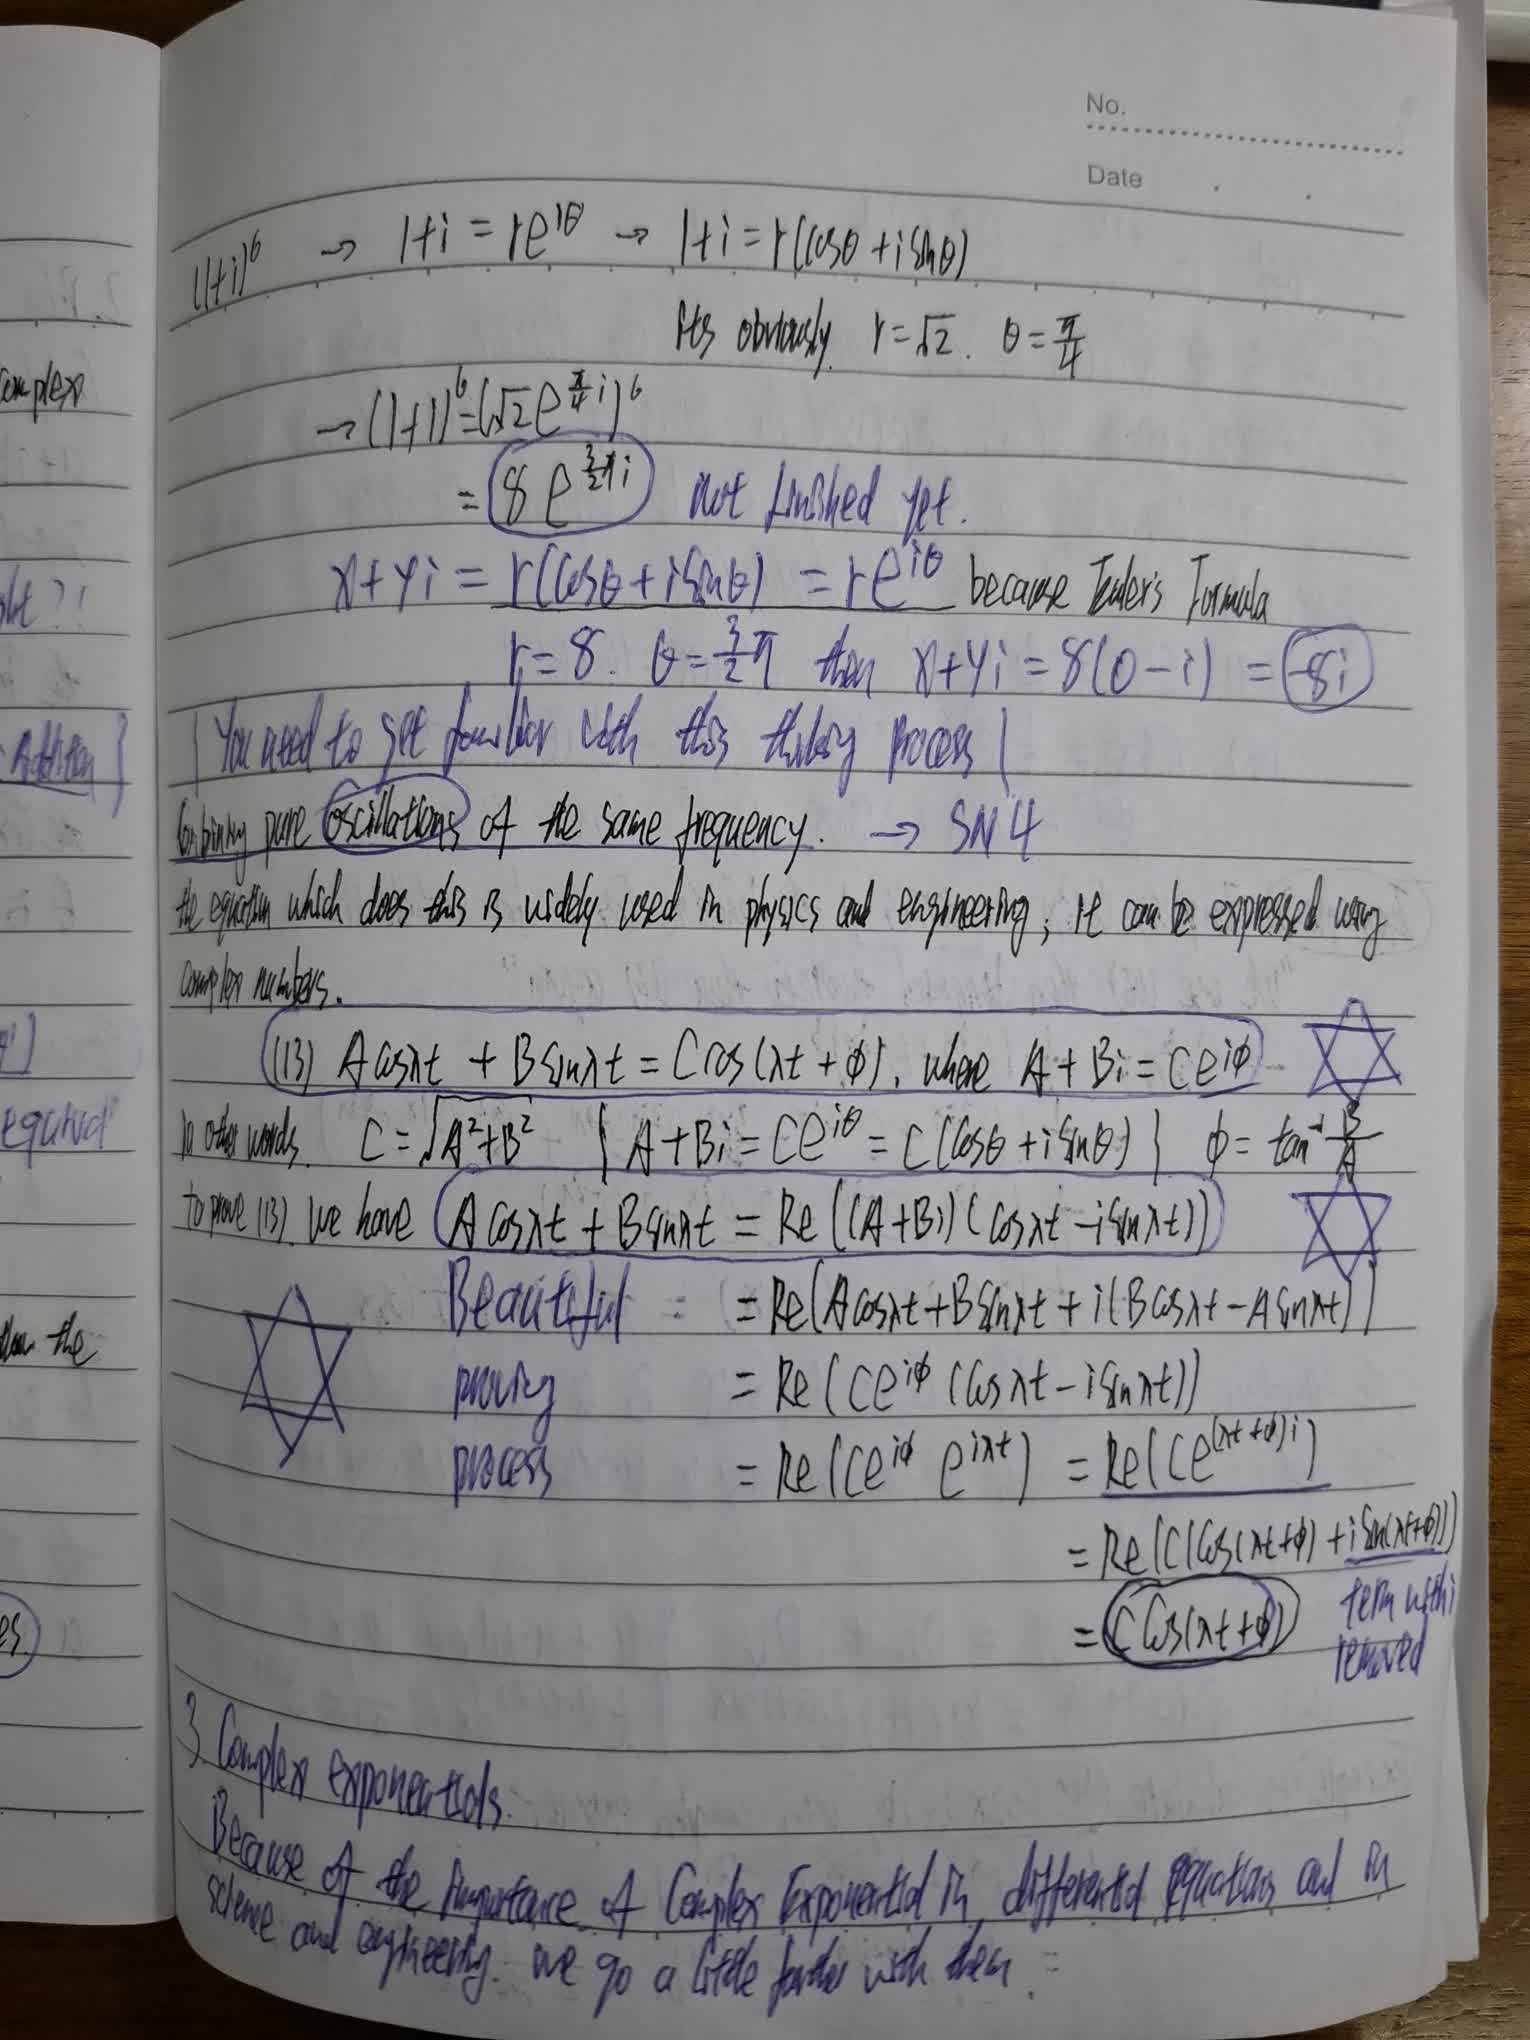 No.
Date
(1+i)^6 → 1+i = re^{iθ} → 1+i = r(cosθ + i sinθ)
its obviously. r = √2. θ = π/4
→ (1+i)^6 = (√2 e^{π/4 i})^6
= 8 e^{3/2 π i} not finished yet.
x + yi = r(cosθ + i sinθ) = re^{iθ} because Euler's Formula
r = 8. θ = 3/2 π then x + yi = 8(0 - i) = -8i
You need to get familiar with this thinking process
Combining pure oscillations of the same frequency. → SN 4
the equation which does this is widely used in physics and engineering; it can be expressed using
complex numbers.
(13) A cosλt + B sinλt = C cos(λt + φ), where A + Bi = Ce^{iφ}
in other words. C = √A²+B² { A + Bi = Ce^{iθ} = C(cosθ + i sinθ) } φ = tan⁻¹ B/A
to prove (13). we have A cosλt + B sinλt = Re((A+Bi)(cosλt - i sinλt))
Beautiful = = Re(A cosλt + B sinλt + i(B cosλt - A sinλt))
proving = Re(Ce^{iφ}(cosλt - i sinλt))
process = Re(Ce^{iφ} e^{iλt}) = Re(Ce^{(λt+φ)i})
= Re(C(cos(λt+φ) + i sin(λt+φ)))
= C cos(λt+φ) term with i
removed
3. Complex exponentials.
Because of the importance of Complex Exponential in differential equations and in
science and engineering. we go a little further with them.
complex
ght?!
Addition }
required
than the
es.